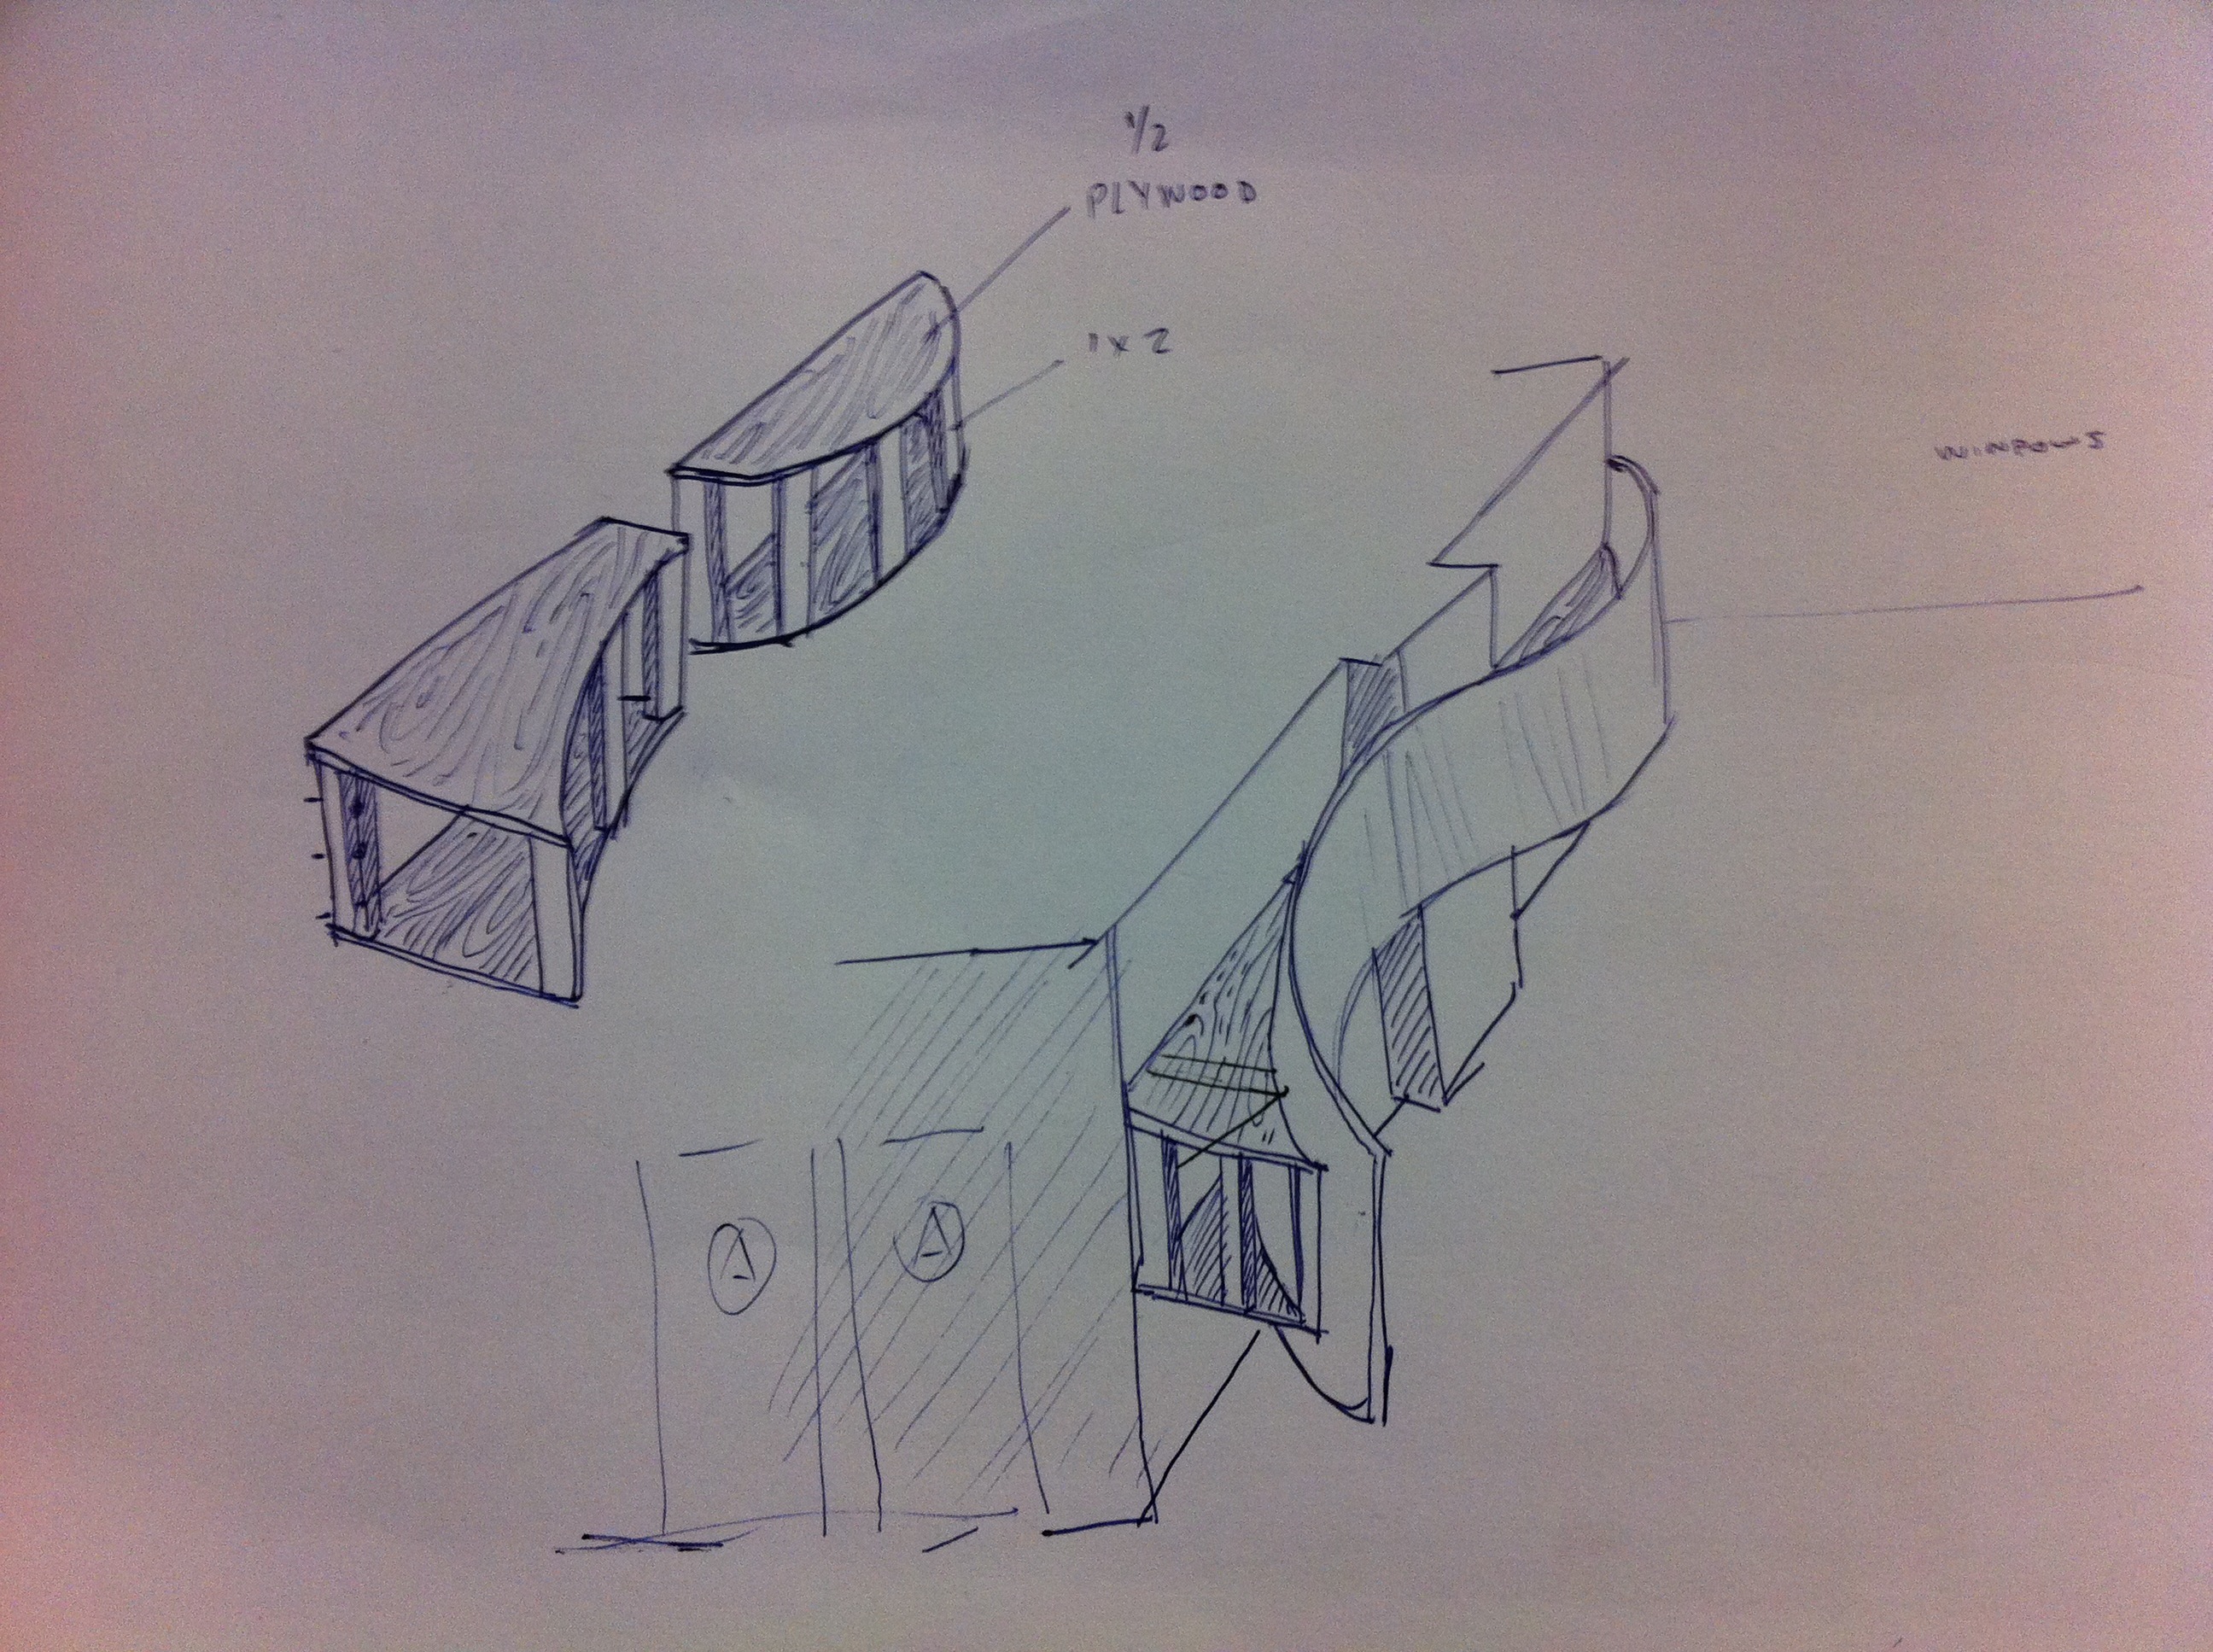 1/2
PLYWOOD
1x2
WINDOWS
A
A